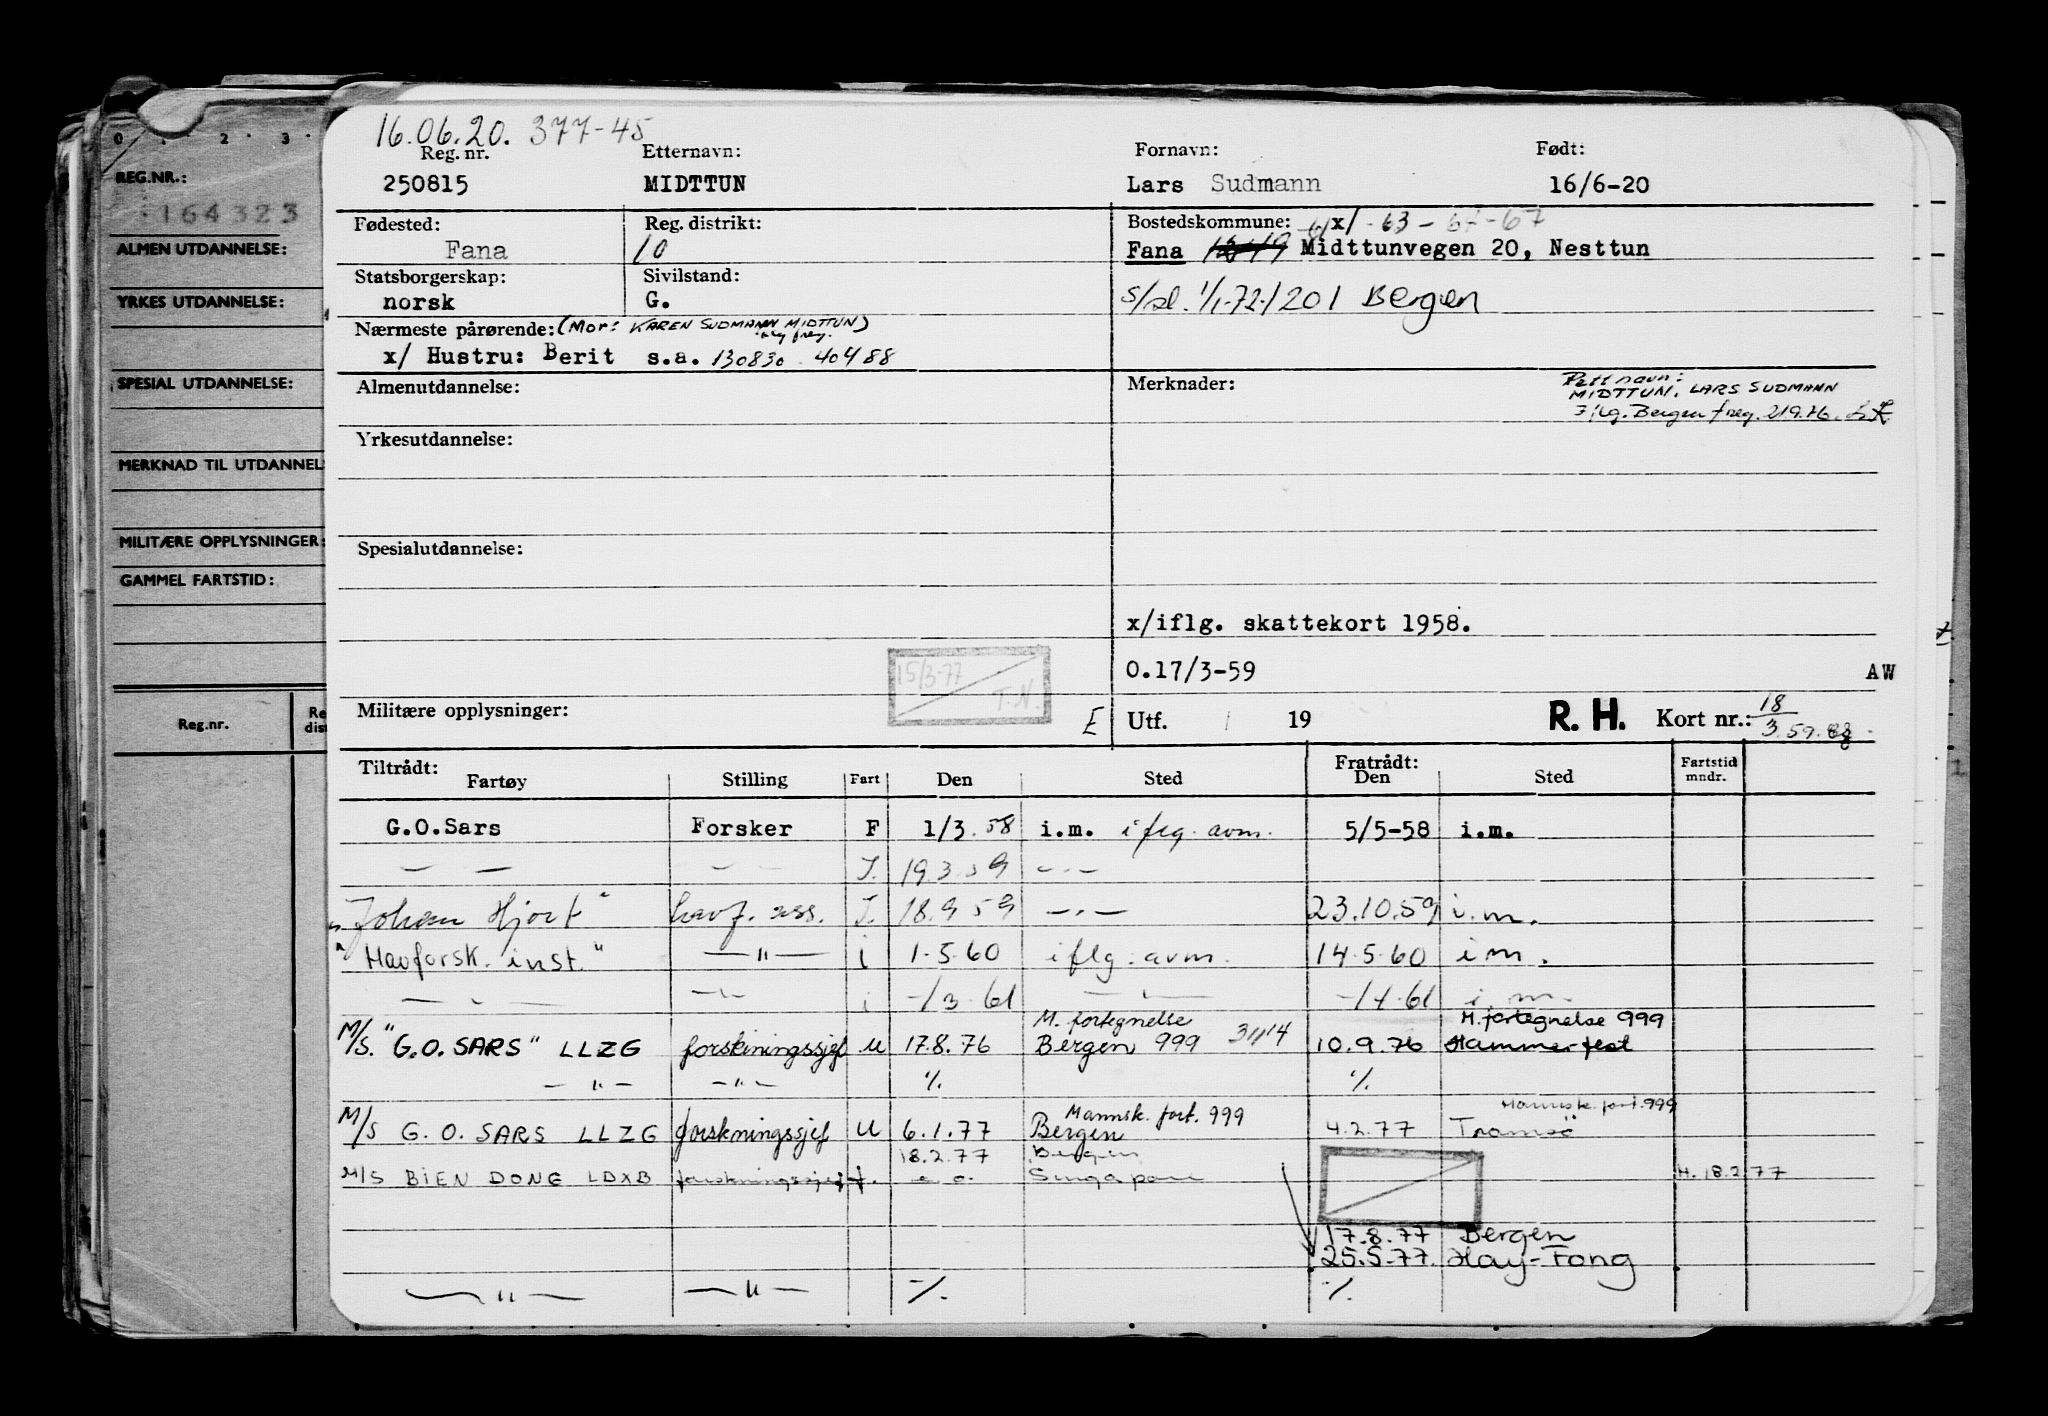 0 . 2 . 3 .
REG.NR.:
164323
ALMEN UTDANNELSE:
YRKES UTDANNELSE:
SPESIAL UTDANNELSE:
MERKNAD TIL UTDANNEL
MILITÆRE OPPLYSNINGER:
GAMMEL FARTSTID:
Reg.nr. Re
dist
16.06.20. 377-45
Reg. nr. Etternavn: Fornavn: Født:
250815 MIDTTUN Lars Sudmann 16/6-20
Fødested: Reg. distrikt: Bostedskommune: 61 x/ -63 - 64-67
Fana 10 Fana Midttunvegen 20, Nesttun
Statsborgerskap: Sivilstand:
norsk G. s/sl. 1/1-72-1201 Bergen
Nærmeste pårørende: (Mor: KAREN SUDMANN MIDTTUN)
iflg freg.
x/ Hustru: Berit s.a. 130830 40488
Almenutdannelse: Merknader: Rett navn:
MIDTTUN, LARS SUDMANN
Iflg. Bergen freg. 21976.
Yrkesutdannelse:
Spesialutdannelse:
x/iflg. skattekort 1958.
15/3-77
T.N.
O.17/3-59 AW
Militære opplysninger: E Utf. / 19 R. H. Kort nr.: 18/3.59.
Tiltrådt: Fratrådt: Fartstid
Fartøy Stilling Fart Den Sted Den Sted mndr.
G.O.Sars Forsker F 1/3.58 i.m. iflg. avm. 5/5-58 i.m.
— — — — I. 19.3.59 —.—
"Johan Hjort" havf. ass. I. 18.9 59 —.— 23.10.59 i.m.
"Havforsk. inst." —"— i 1.5.60 iflg. avm. 14.5.60 i m.
— " — —"— i -/3.61 — " — -/4.61 i. m.
M. fortegnelse M.fortegnelse 999
M/S. "G.O. SARS" LLZG forskiningssjef U 17.8.76 Bergen 999 3114 10.9.76 Hammerfest
— " — —"— ./. ./.
Mannsk. fort. 999 Mannsk. fort. 999
M/S G. O. SARS LLZG forskningssjef U 6.1.77 Bergen 4.2.77 Tromsø
18.2.77 Bergen
M/S BIEN DONG LDXB forskningssjef f. Singapore H. 18.2.77
17.8.77 Bergen
25.5.77. Hay-Fong
— " — —"— ./. ./.